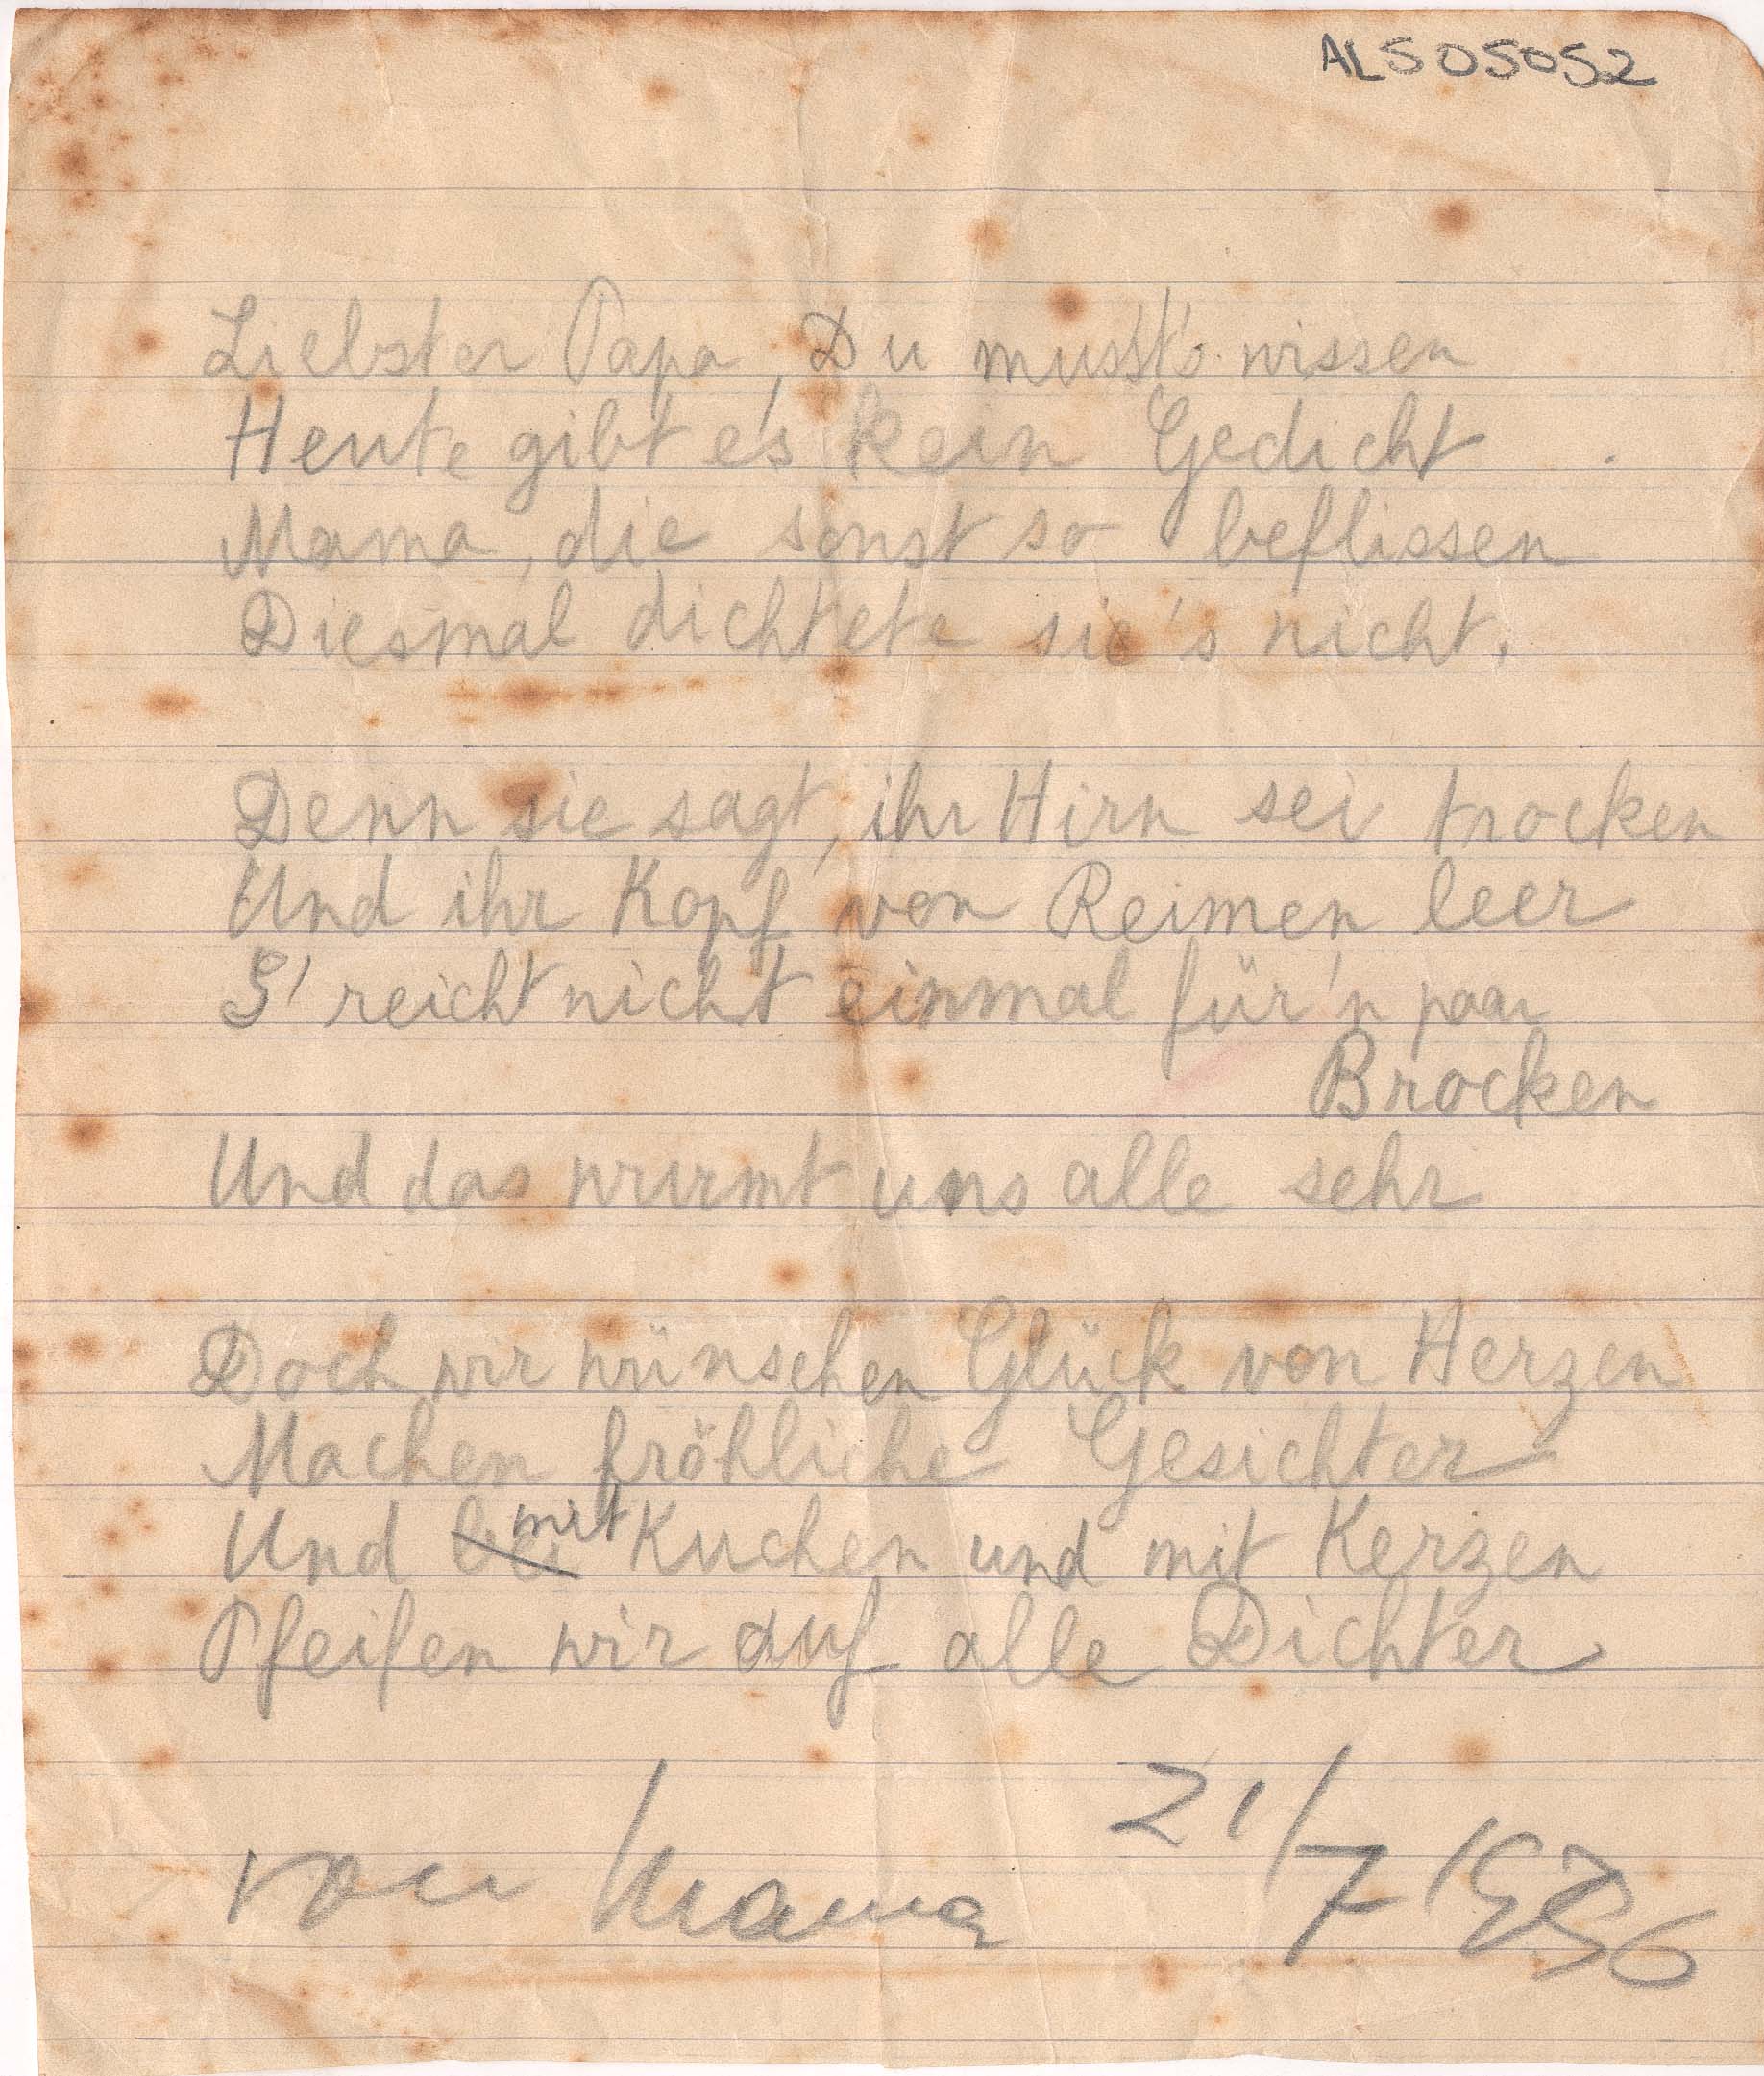 ALS05052
Liebster Papa, Du musst's wissen
Heute gibt e's kein Gedicht
Mama, die sonst so beflissen
Diesmal dichtete sie's nicht.
Denn sie sagt, ihr Hirn sei trocken
Und ihr Kopf von Reimen leer
S' reicht nicht einmal für'n paar
Brocken
Und das wurmt uns alle sehr
Doch wir wünschen Glück von Herzen
Machen fröhliche Gesichter
Und bei mit Kuchen und mit Kerzen
Pfeifen wir auf alle Dichter
von Mama 21/7